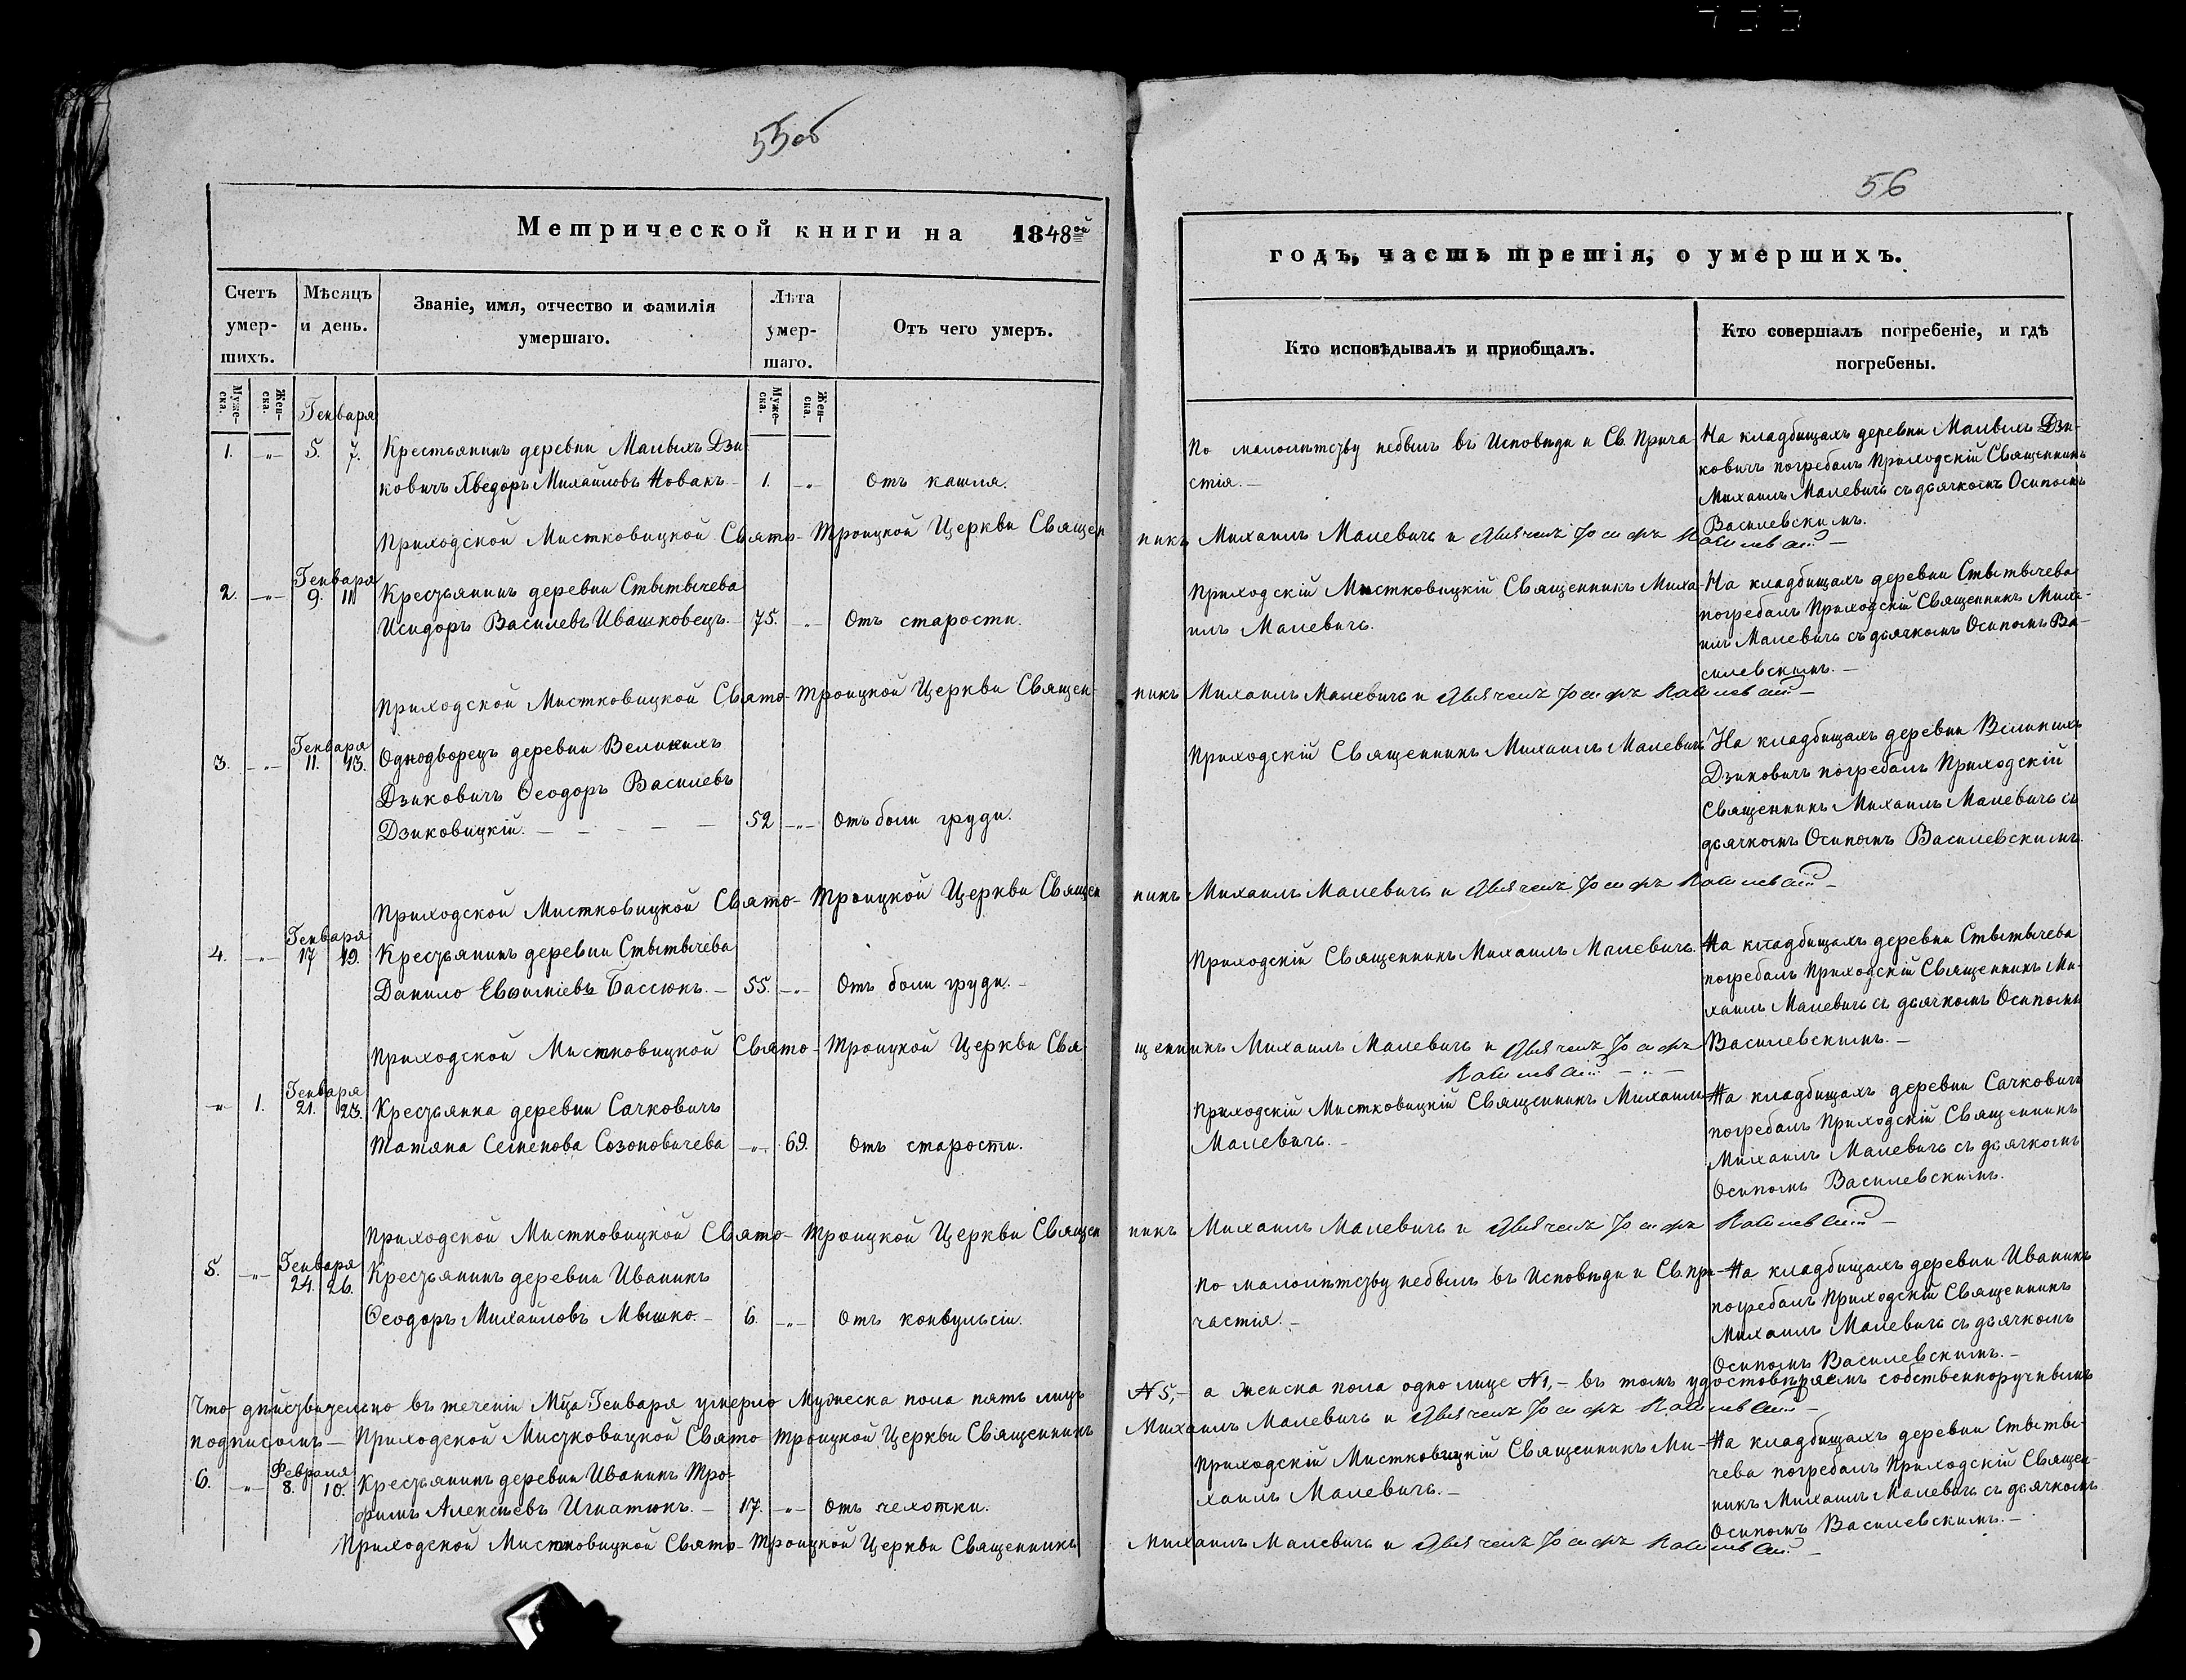 55об
Метрической книги на 1848ой
Счетъ умер-шихъ.
Мѣсяцъ и день.
Званіе, имя, отчество и фамилія умершаго.
Лѣта умер-шаго.
Отъ чего умеръ.
Муже-ска.
Жен-ска.
Муже-ска.
Жен-ска.
Генваря
1. -„- 5. 7. Крестьянинъ деревни Малыхъ Дзи-
ковичъ Хведоръ Михайловъ Новакъ - 1. -„- Отъ кашля.
Приходской Мистковицкой Свято-Троицкой Церкви Священ
Генваря
2. -„- 9. 11 Крестьянинъ деревни Стытычева
Исидоръ Василевъ Ивашковецъ. - 75. -„- Отъ старости.
Приходской Мистковицкой Свято-Троицкой Церкви Священ-
Генваря
3. -„- 11. 13. Однодворецъ деревни Великихъ
Дзиковичъ Ѳеодоръ Василевъ
Дзиковицкій. - - - - - 52 -„- Отъ боли груди.
Приходской Мистковицкой Свято-Троицкой Церкви Священ
Генваря
4. -„- 17 19. Крестьянинъ деревни Стытычева
Данило Евфиміевъ Бассюкъ. - 55. -„- Отъ боли груди. -
Приходской Мистковицкой Свято-Троицкой Церкви Свя
Генваря
-„- 1. 21. 23. Крестьянка деревни Сачковичъ
Татяна Семенова Созоновичева -„- 69. Отъ старости.
Приходской Мистковицкой Свято-Троицкой Церкви Священ
Генваря
5. -„- 24. 26. Крестьянинъ деревни Иваникъ
Ѳеодоръ Михайловъ Мышко. - 6. -„- Отъ конвульсіи.
Что дѣйствительно въ теченіи Мца Генваря умерло Мужеска пола пять лицъ
подписомъ - Приходской Мистковицкой Свято Троицкой Церкви Священникъ
Февраля
6. -„- 8. 10. Крестьянинъ деревни Иваникъ Тро-
фимъ Алексѣевъ Игнатюкъ. - 17. -„- Отъ чехотки.
Приходской Мистковицкой Свято-Троицкой Церкви Священникъ
56
годъ, часть третія, о умершихъ.
Кто исповѣдывалъ и пріобщалъ.
Кто совершалъ погребеніе, и гдѣ погребены.
По малолѣтству небылъ въ Исповѣди и Св. Прича
стія. -
На кладбищахъ деревни Малыхъ Дзи-
ковичъ погребалъ Приходскій Священникъ
Михаилъ Малевичъ съ дьячкомъ Осипомъ
Василевскимъ.
никъ Михаилъ Малевичъ и Дьячекъ Іосифъ Василевскій -
Приходскій Мистковицкій Священникъ Миха-
илъ Малевичъ.
На кладбищахъ деревни Стытычева
погребалъ Приходскій Священникъ Миха-
илъ Малевичъ съ дьячкомъ Осипомъ Ва-
силевскимъ. -
никъ Михаилъ Малевичъ и Дьячекъ Іосифъ Василевскій -
Приходскій Священникъ Михаилъ Малевичъ
На кладбищахъ деревни Великихъ
Дзиковичъ погребалъ Приходскій
Священникъ Михаилъ Малевичъ съ
дьячкомъ Осипомъ Василевскимъ.
никъ Михаилъ Малевичъ и Дьячекъ Іосифъ Василевскій -
Приходскій Священникъ Михаилъ Малевичъ.
На кладбищахъ деревни Стытычева
погребалъ Приходскій Священникъ Ми-
хаилъ Малевичъ съ дьячкомъ Осипомъ
Василевскимъ. -
щенникъ Михаилъ Малевичъ и Дьячекъ Іосифъ
Василевскій - „ -
Приходскій Мистковицкій Священникъ Михаилъ
Малевичъ. -
На кладбищахъ деревни Сачковичъ
погребалъ Приходскій Священникъ
Михаилъ Малевичъ съ дьячкомъ
Осипомъ Василевскимъ.
никъ Михаилъ Малевичъ и Дьячекъ Іосифъ Василевскій -
По малолѣтству небылъ въ Исповѣди и Св. При-
частія. -
На кладбищахъ деревни Иваникъ
погребалъ Приходскій Священникъ
Михаилъ Малевичъ съ дьячкомъ
Осипомъ Василевскимъ. -
№ 5, - а женска пола одно лице № 1, - въ томъ удостовѣряемъ собственноручнымъ
Михаилъ Малевичъ и Дьячекъ Іосифъ Василевскій -
Приходскій Мистковицкій Священникъ Ми-
хаилъ Малевичъ. -
На кладбищахъ деревни Стыты-
чева погребалъ Приходскій Священ-
никъ Михаилъ Малевичъ съ дьячкомъ
Осипомъ Василевскимъ. -
Михаилъ Малевичъ и Дьячекъ Іосифъ Василевскій -